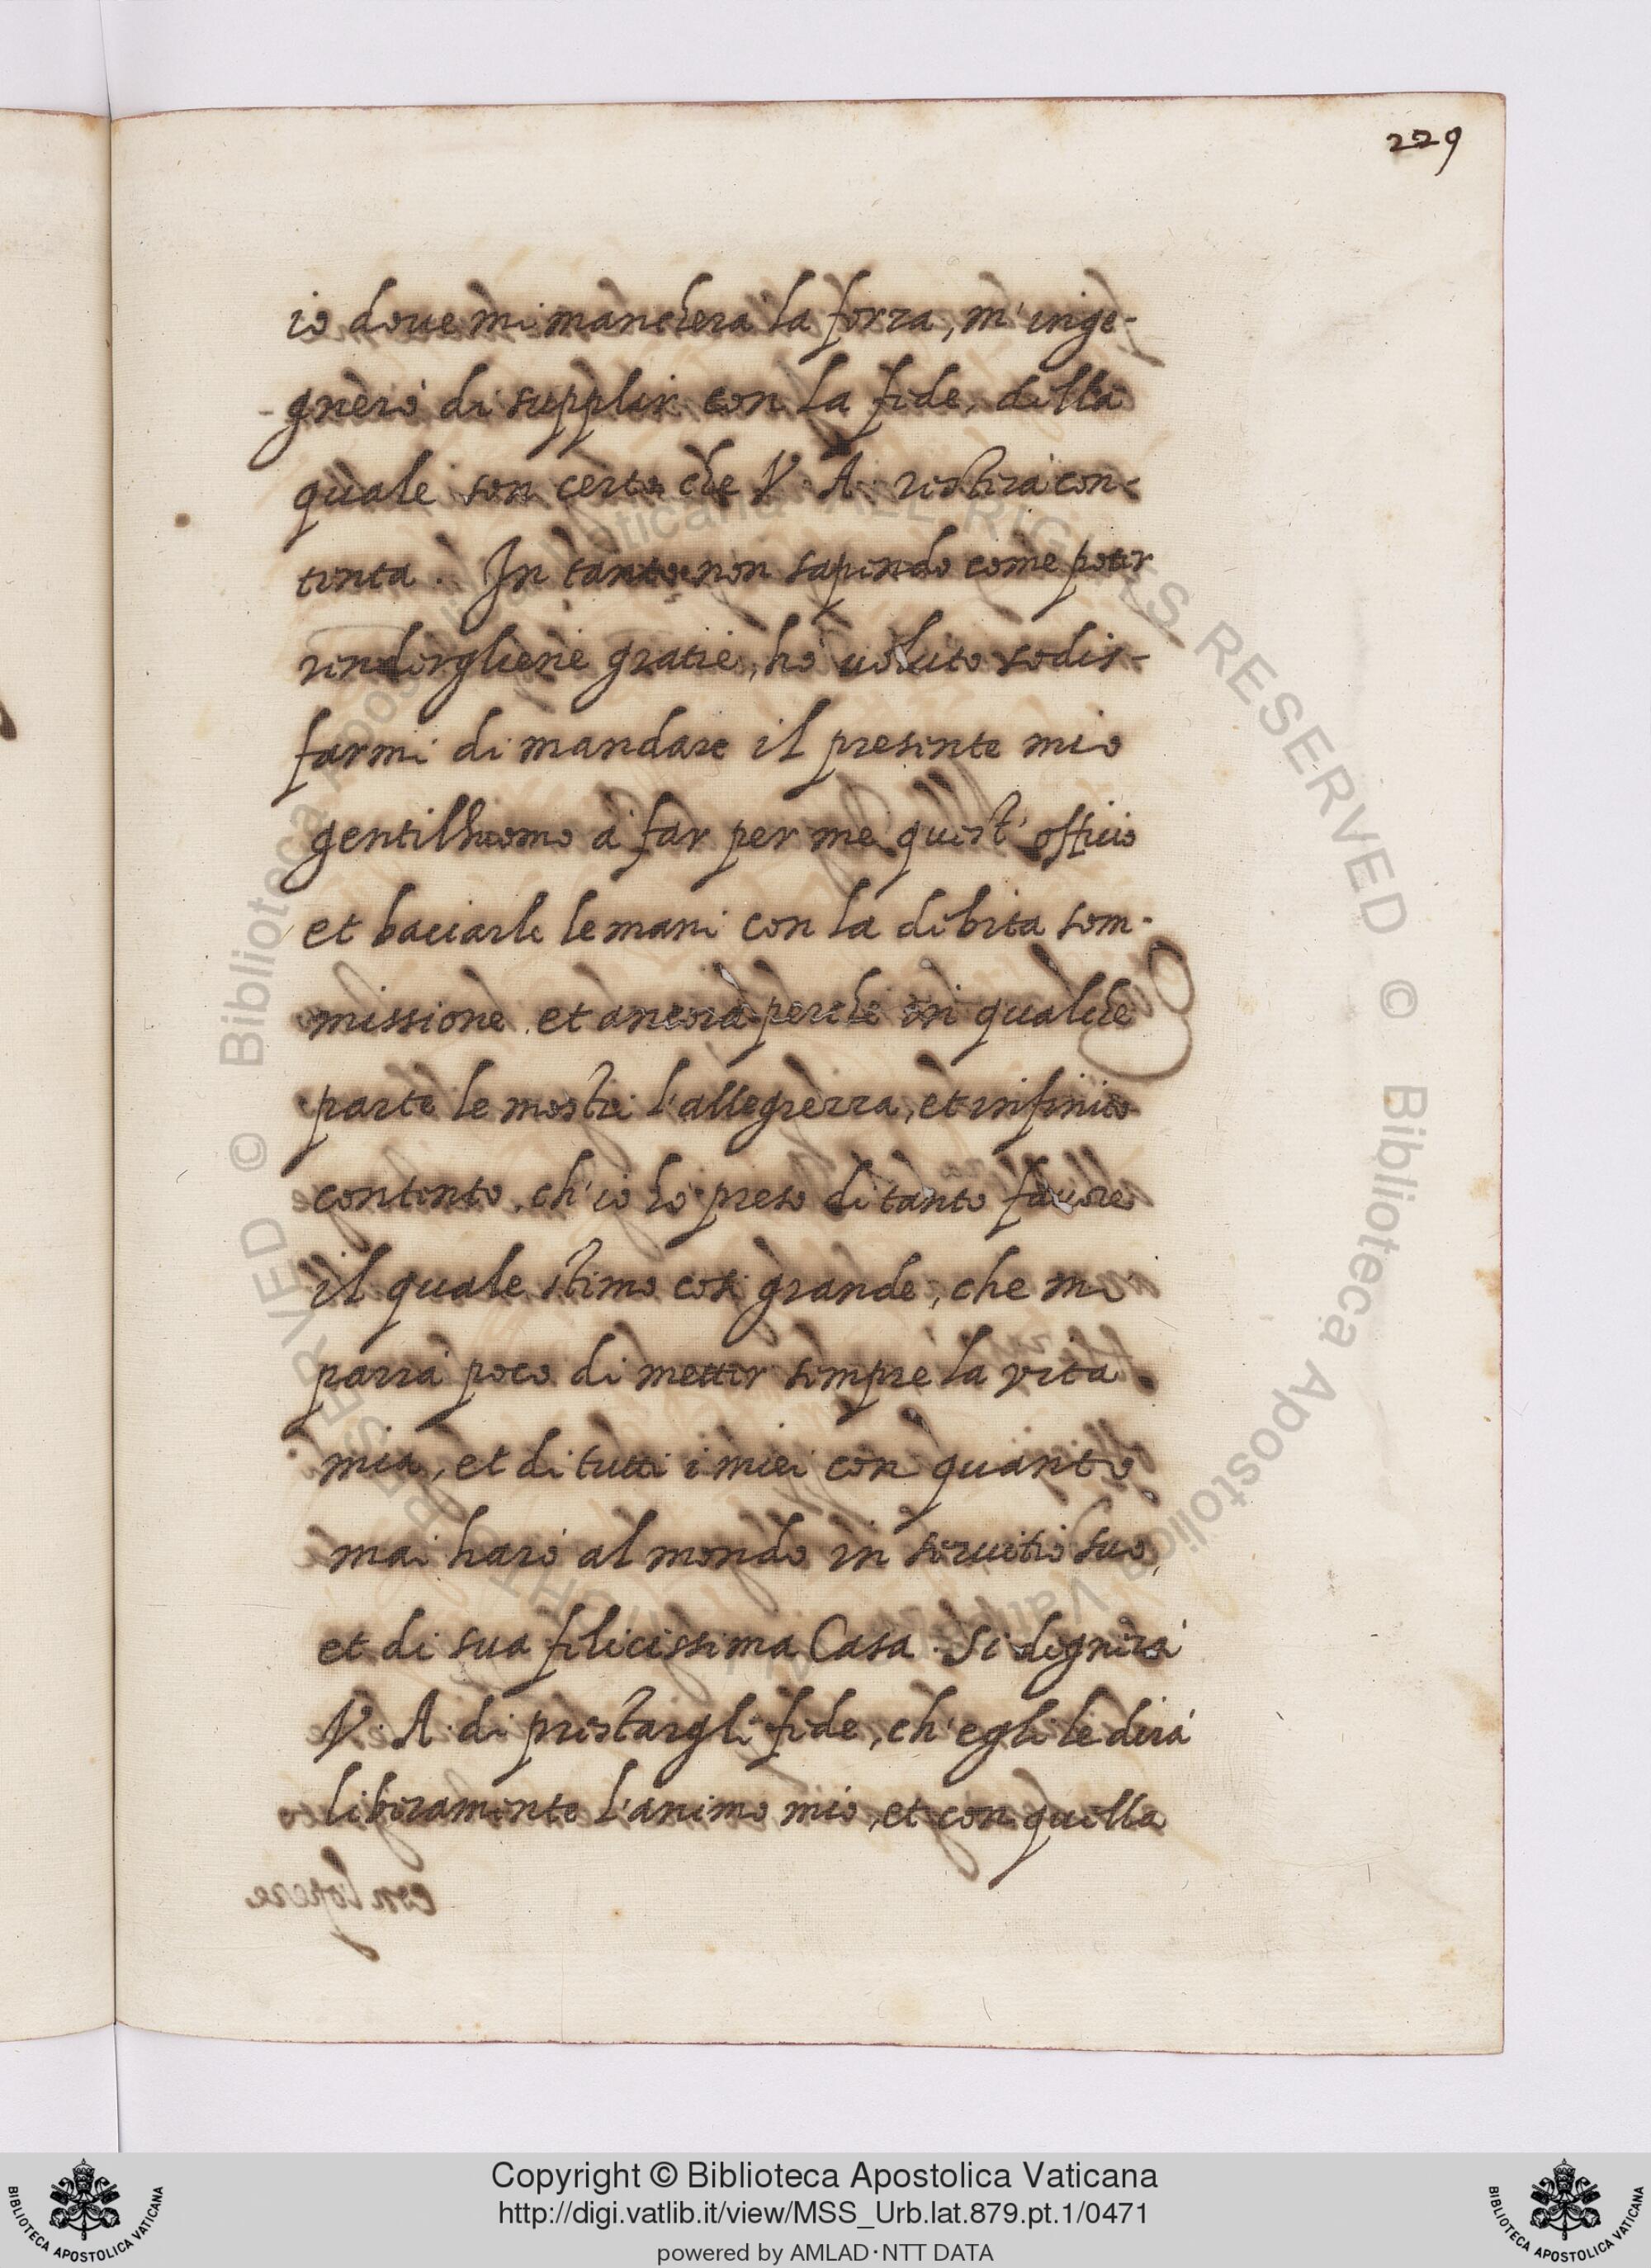 229
io doue mi manchera la forza, m'inge-
gnerò di supplir con la fede, della
quale son certo che V. A. resterà con-
tenta. In tanto non sapendo come poter
renderglieне gratie, hò uoluto sodis-
farmi di mandare il presente mio
gentilhuomo à far per me quest'officio
et baciarle le mani con la debita som-
missione. et ancora perche in qualche
parte le mostri l'allegrezza, et infinito
contento, ch'io hò preso di tanto fauore
il quale stimo cosi grande, che mi
parrà poco di metter sempre la vita
mia, et di tutti i miei con quanto
mai harò al mondo in seruitio suo,
et di sua felicissima Casa. Si degnerà
V. A. di prestargli fede, ch'egli le dirà
liberamente l'animo mio, et con quella
Copyright © Biblioteca Apostolica Vaticana
http://digi.vatlib.it/view/MSS_Urb.lat.879.pt.1/0471
powered by AMLAD·NTT DATA
BIBLIOTECA APOSTOLICA VATICANA
BIBLIOTECA APOSTOLICA VATICANA